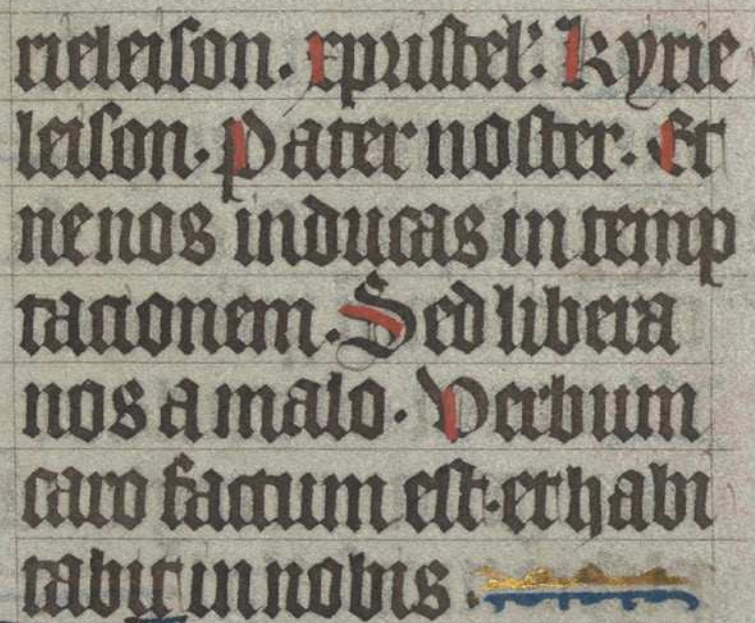 rieleison. xpristel': kyrie
leison. Pater noster. Et
ne nos inducas in temp
tacionem. Sed libera
nos a malo. Verbum
caro factum est. et habi
tabit in nobis.